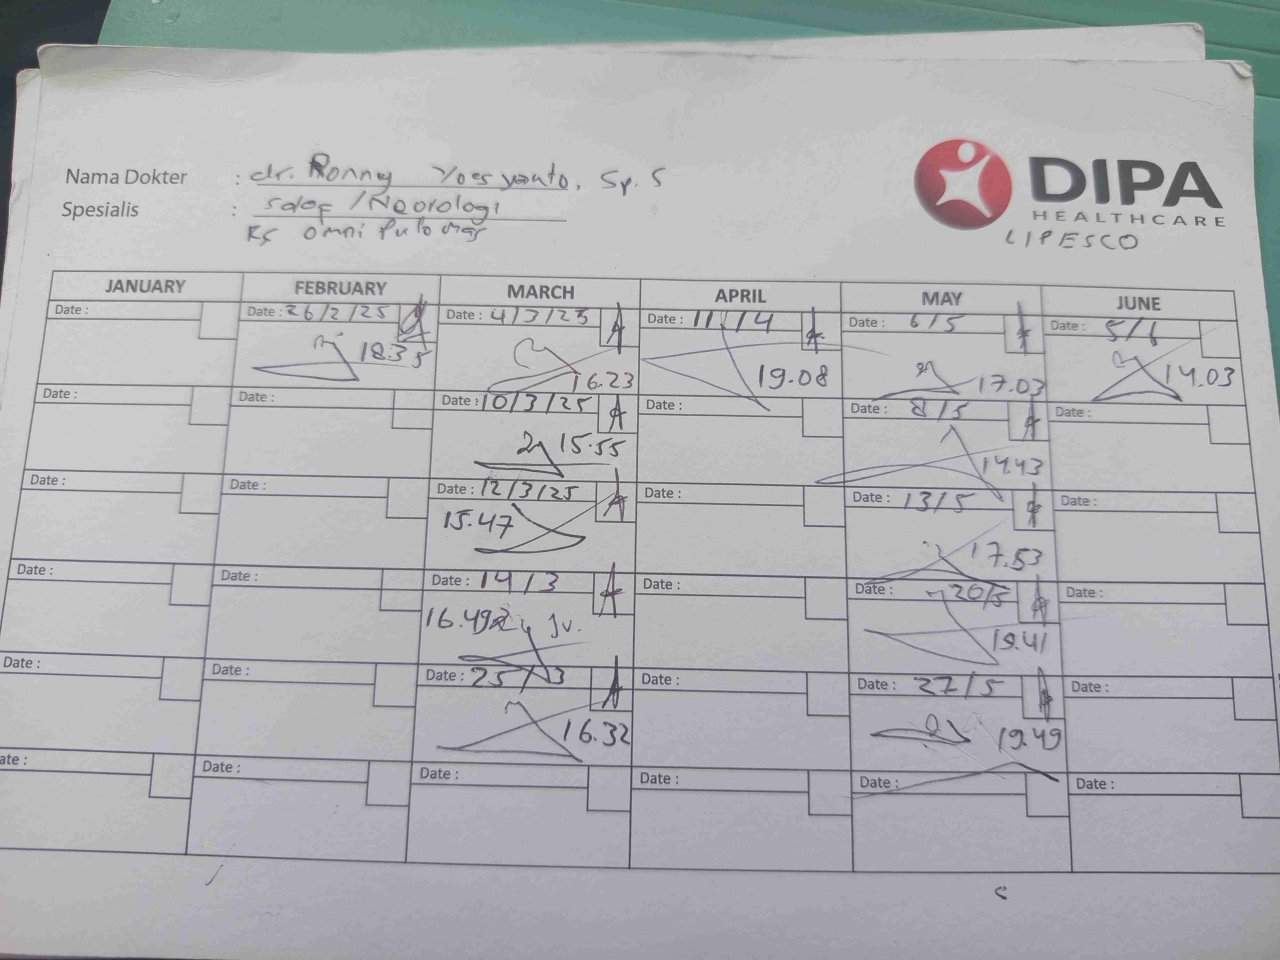 Nama Dokter : dr. Ronny Yoesyanto, Sp. S
Spesialis : saraf / Neorologi
RS omni Pulo mas
DIPA
HEALTHCARE
LIPESCO
JANUARY FEBRUARY MARCH APRIL MAY JUNE
Date : Date : 26/2/25 Date : 4/3/25 Date : 11/4 Date : 6/5 Date : 5/6
18.35 16.23 19.08 17.03 14.03
Date : Date : Date : 10/3/25 Date : Date : 8/5 Date :
15.55 14.43
Date : Date : Date : 12/3/25 Date : Date : 13/5 Date :
15.47 17.53
Date : Date : Date : 14/3 Date : Date : 20/5 Date :
16.49 Jv. 19.41
Date : Date : Date : 25/3 Date : Date : 27/5 Date :
16.32 19.49
Date : Date : Date : Date : Date : Date :